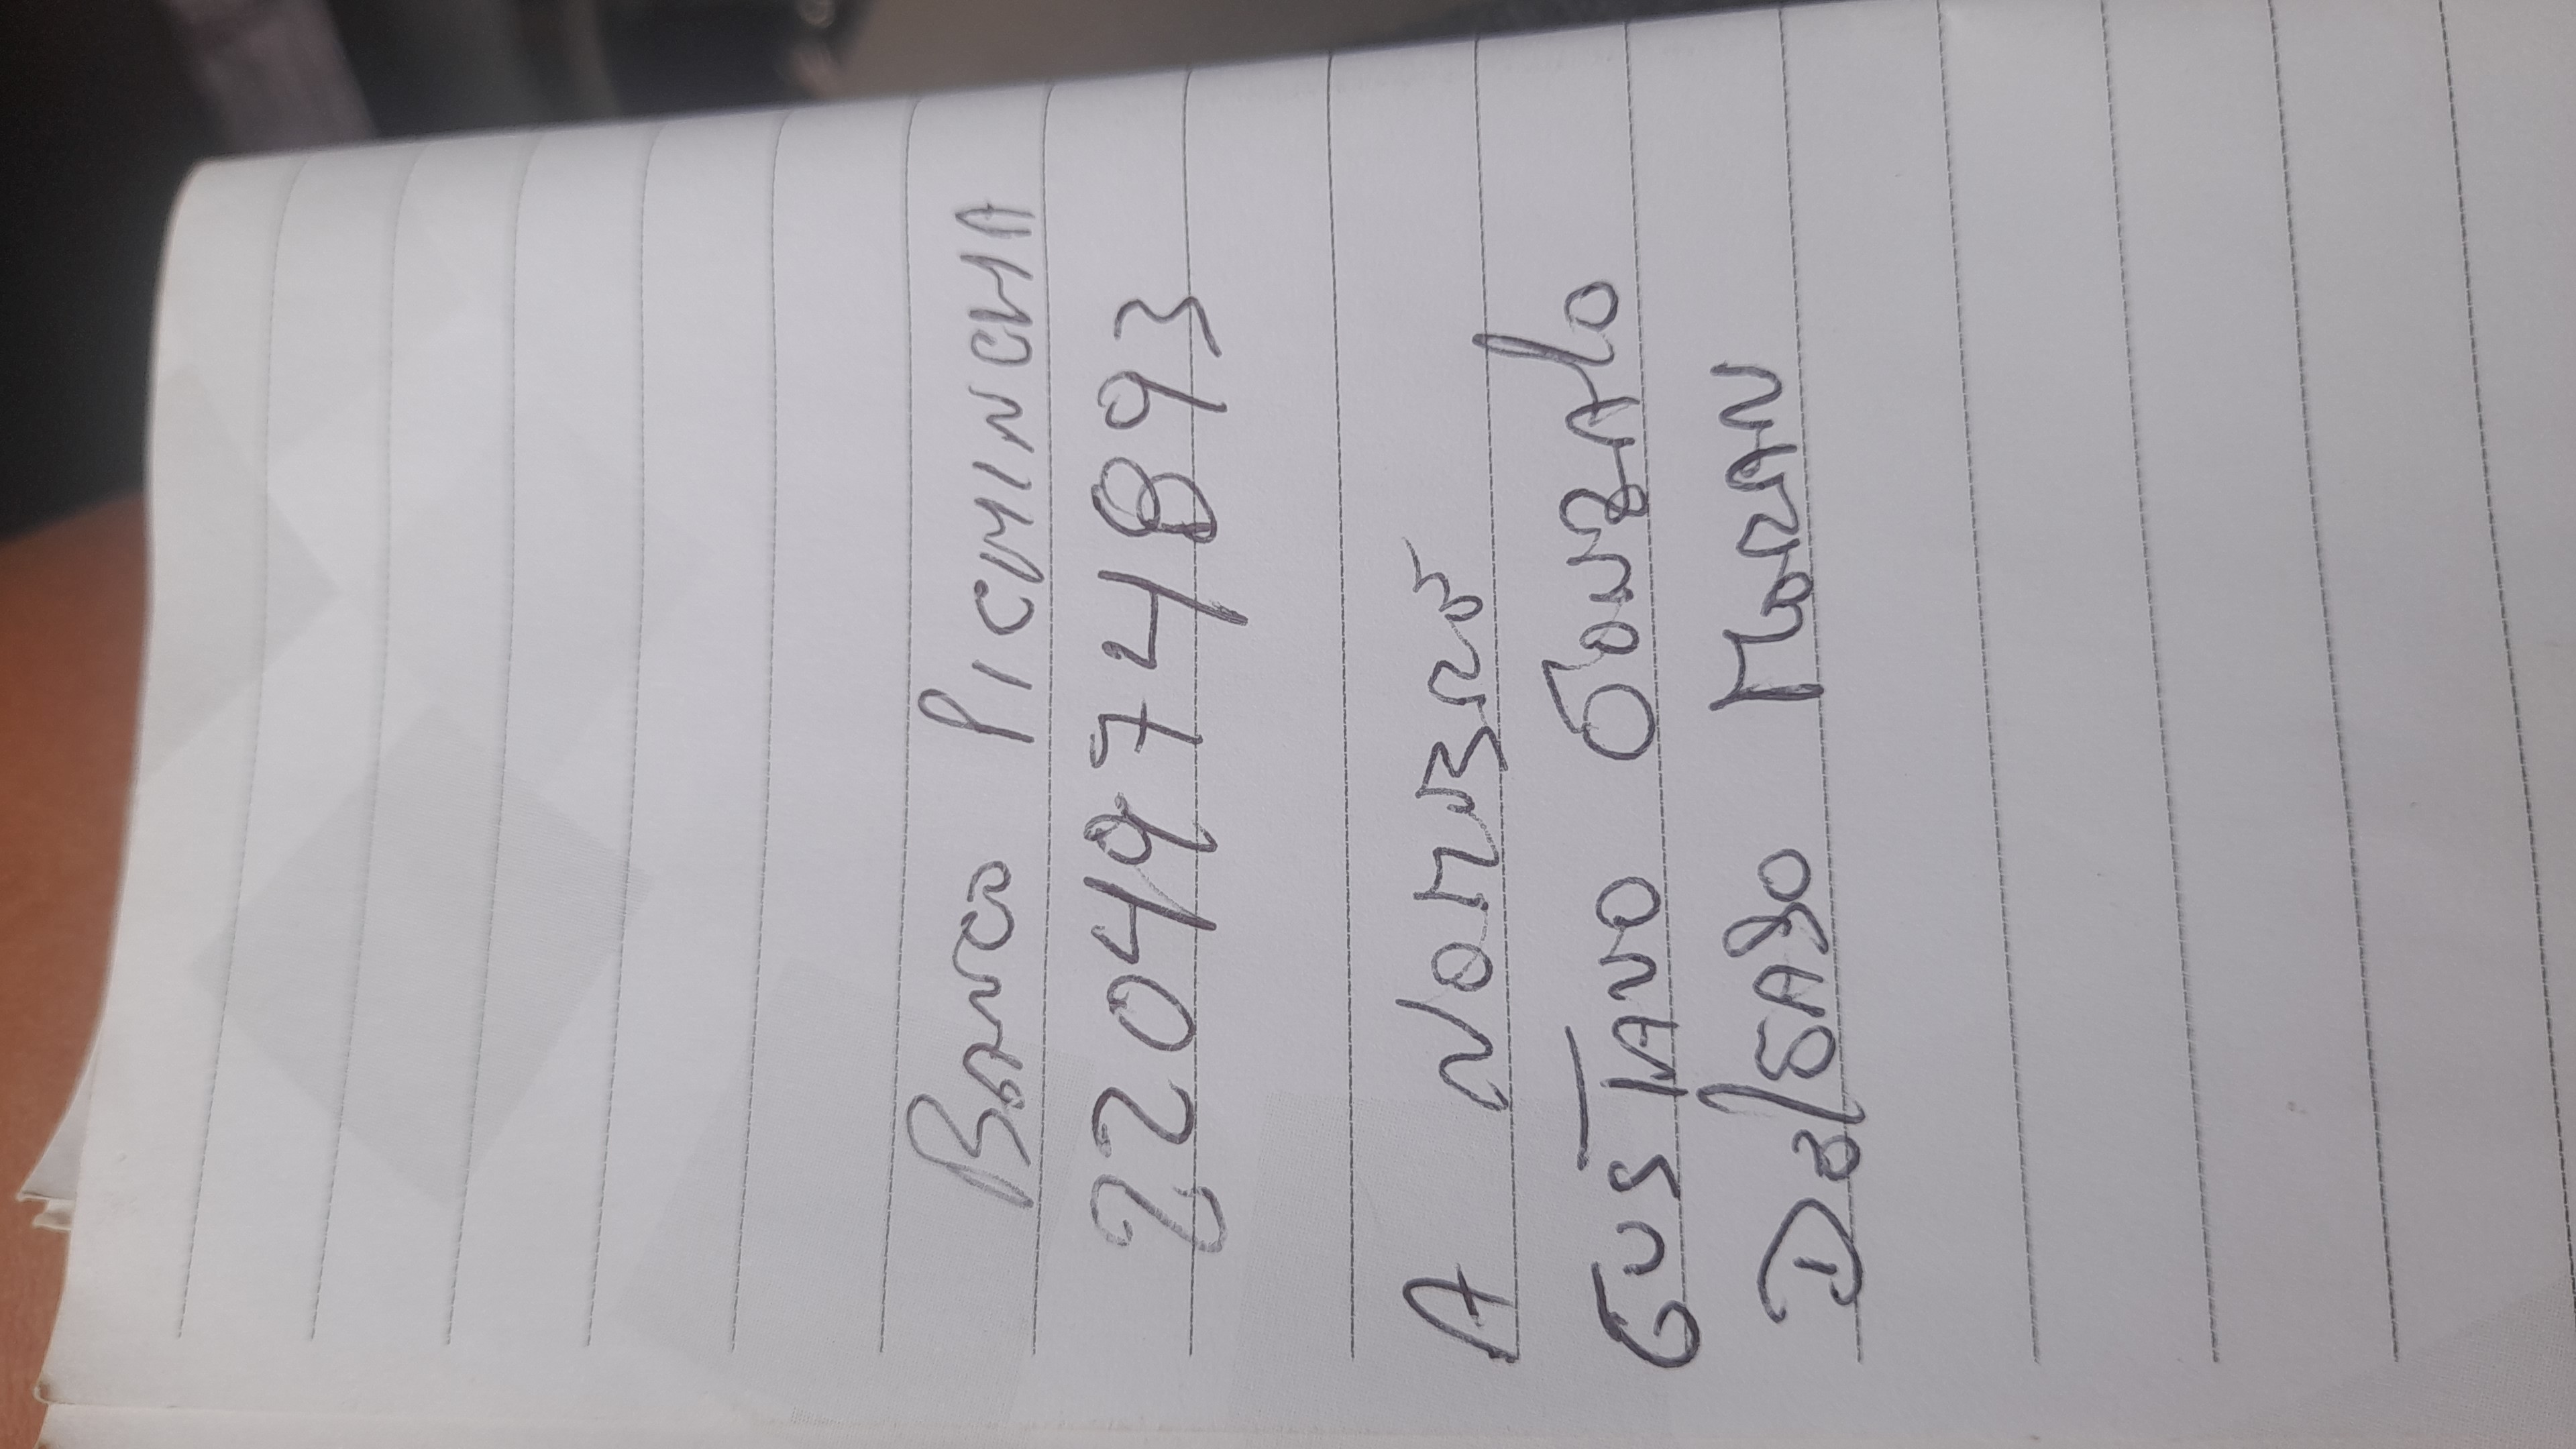 Banco PICHINCHA
2204974893
A NOMBRE
GUSTAVO GONZALO
DELGADO MORAN